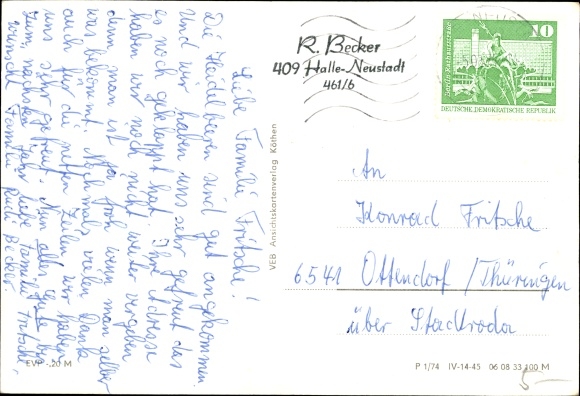 Liebe Familie Fritsche!
Die Heidelbeeren sind gut angekommen
und wir haben uns sehr gefreut das
es noch geklappt hat. Ihre Adresse
haben wir noch nicht weiter vergeben
denn man ist ja froh wenn man selber
was bekommt. Nochmals vielen Dank
auch für die netten Zeilen, wir haben
uns sehr gefreut. Nun alles Gute bis
zum nächsten Jahr liebe Familie Fritsche,
wünscht Familie Rudi Becker.
R. Becker
409 Halle-Neustadt
461/6
10
DEUTSCHE DEMOKRATISCHE REPUBLIK
VEB Ansichtskartenverlag Köthen
An
Konrad Fritsche
6541 Ottendorf/Thüringen
über Stadtroda
EVP -,20 M
P 1/74 IV-14-45 06 08 33 100 M
5,-